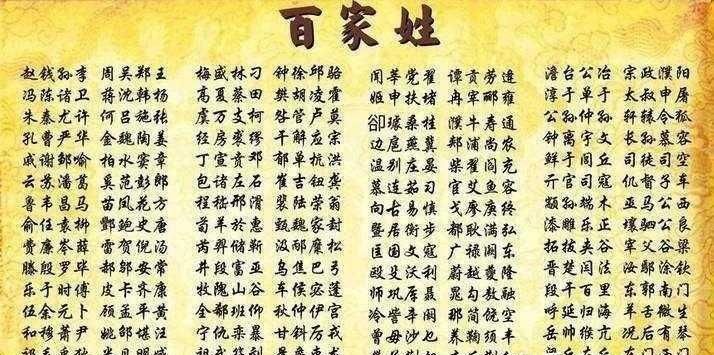 百家姓
赵钱孙李 周吴郑王 梅盛林刁 钟徐邱骆 闻莘党翟 谭贡劳逄 澹台公冶 宗政濮阳
冯陈诸卫 蒋沈韩杨 高夏蔡田 樊胡凌霍 姬申扶堵 冉宰郦雍 淳于单于 太叔申屠
朱秦尤许 何吕施张 虞万支柯 昝管卢莫 卻璩桑桂 濮牛寿通 公孙仲孙 轩辕令狐
孔曹严华 金魏陶姜 经房裘缪 干解应宗 边扈燕冀 郏浦尚农 钟离宇文 长孙慕容
戚谢邹喻 柏水窦章 丁宣贲邓 郁单杭洪 温别庄晏 柴瞿阎充 鲜于闾丘 司徒司空
云苏潘葛 奚范彭郎 包诸左石 崔吉钮龚 慕连茹习 宦艾鱼容 亓官司寇 仉督子车
鲁韦昌马 苗凤花方 程嵇邢滑 裴陆荣翁 向古易慎 戈廖庾终 颛孙端木 巫马公西
俞任袁柳 酆鲍史唐 荀羊於惠 甄魏家封 暨居衡步 都耿满弘 漆雕乐正 壤驷公良
费廉岑薛 雷贺倪汤 芮羿储靳 汲邴糜松 匡国文寇 广禄阙东 拓跋夹谷 宰父谷梁
滕殷罗毕 郝邬安常 井段富巫 乌焦巴弓 殴殳沃利 蔚越夔隆 晋楚闫法 汝鄢涂钦
乐于时傅 皮卞齐康 牧隗山谷 车侯宓蓬 师巩厍聂 晁勾敖融 段干百里 东郭南门
伍余元卜 顾孟平黄 全郗班仰 秋仲伊宫 冷訾辛阚 呼延归海 羊舌微生
和穆萧尹 姚邵湛汪